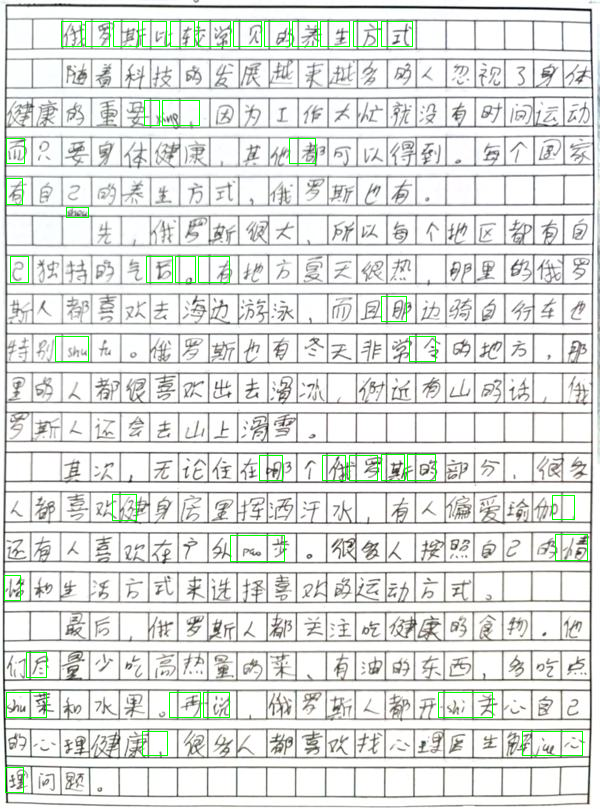 俄罗斯比较常见的养生方式
随着科技的发展越来越多的人忽视了身体
健康的重要xing，因为工作太忙就没有时间运动
而只要身体健康，其他都可以得到。每个国家
有自己的养生方式，俄罗斯也有。
shou
先，俄罗斯很大，所以每个地区都有自
己独特的气后。有地方夏天很热，那里的俄罗
斯人都喜欢去海边游泳，而且那边骑自行车也
特别shu fu。俄罗斯也有冬天非常令的地方，那
里的人都很喜欢出去滑冰，附近有山的话，俄
罗斯人还会去山上滑雪。
其次，无论住在哪个俄罗斯的部分，很多
人都喜欢健身房里挥洒汗水，有人偏爱瑜伽
还有人喜欢在户外pao步。很多人按照自己的情
和生活方式来选择喜欢的运动方式。
最后，俄罗斯人都关注吃健康的食物。他
们尽量少吃高热量的菜、有油的东西，多吃点
shu菜和水果。再说，俄罗斯人都开shi关心自己
的心理健康，很多人都喜欢找心理医生解jue心
理问题。